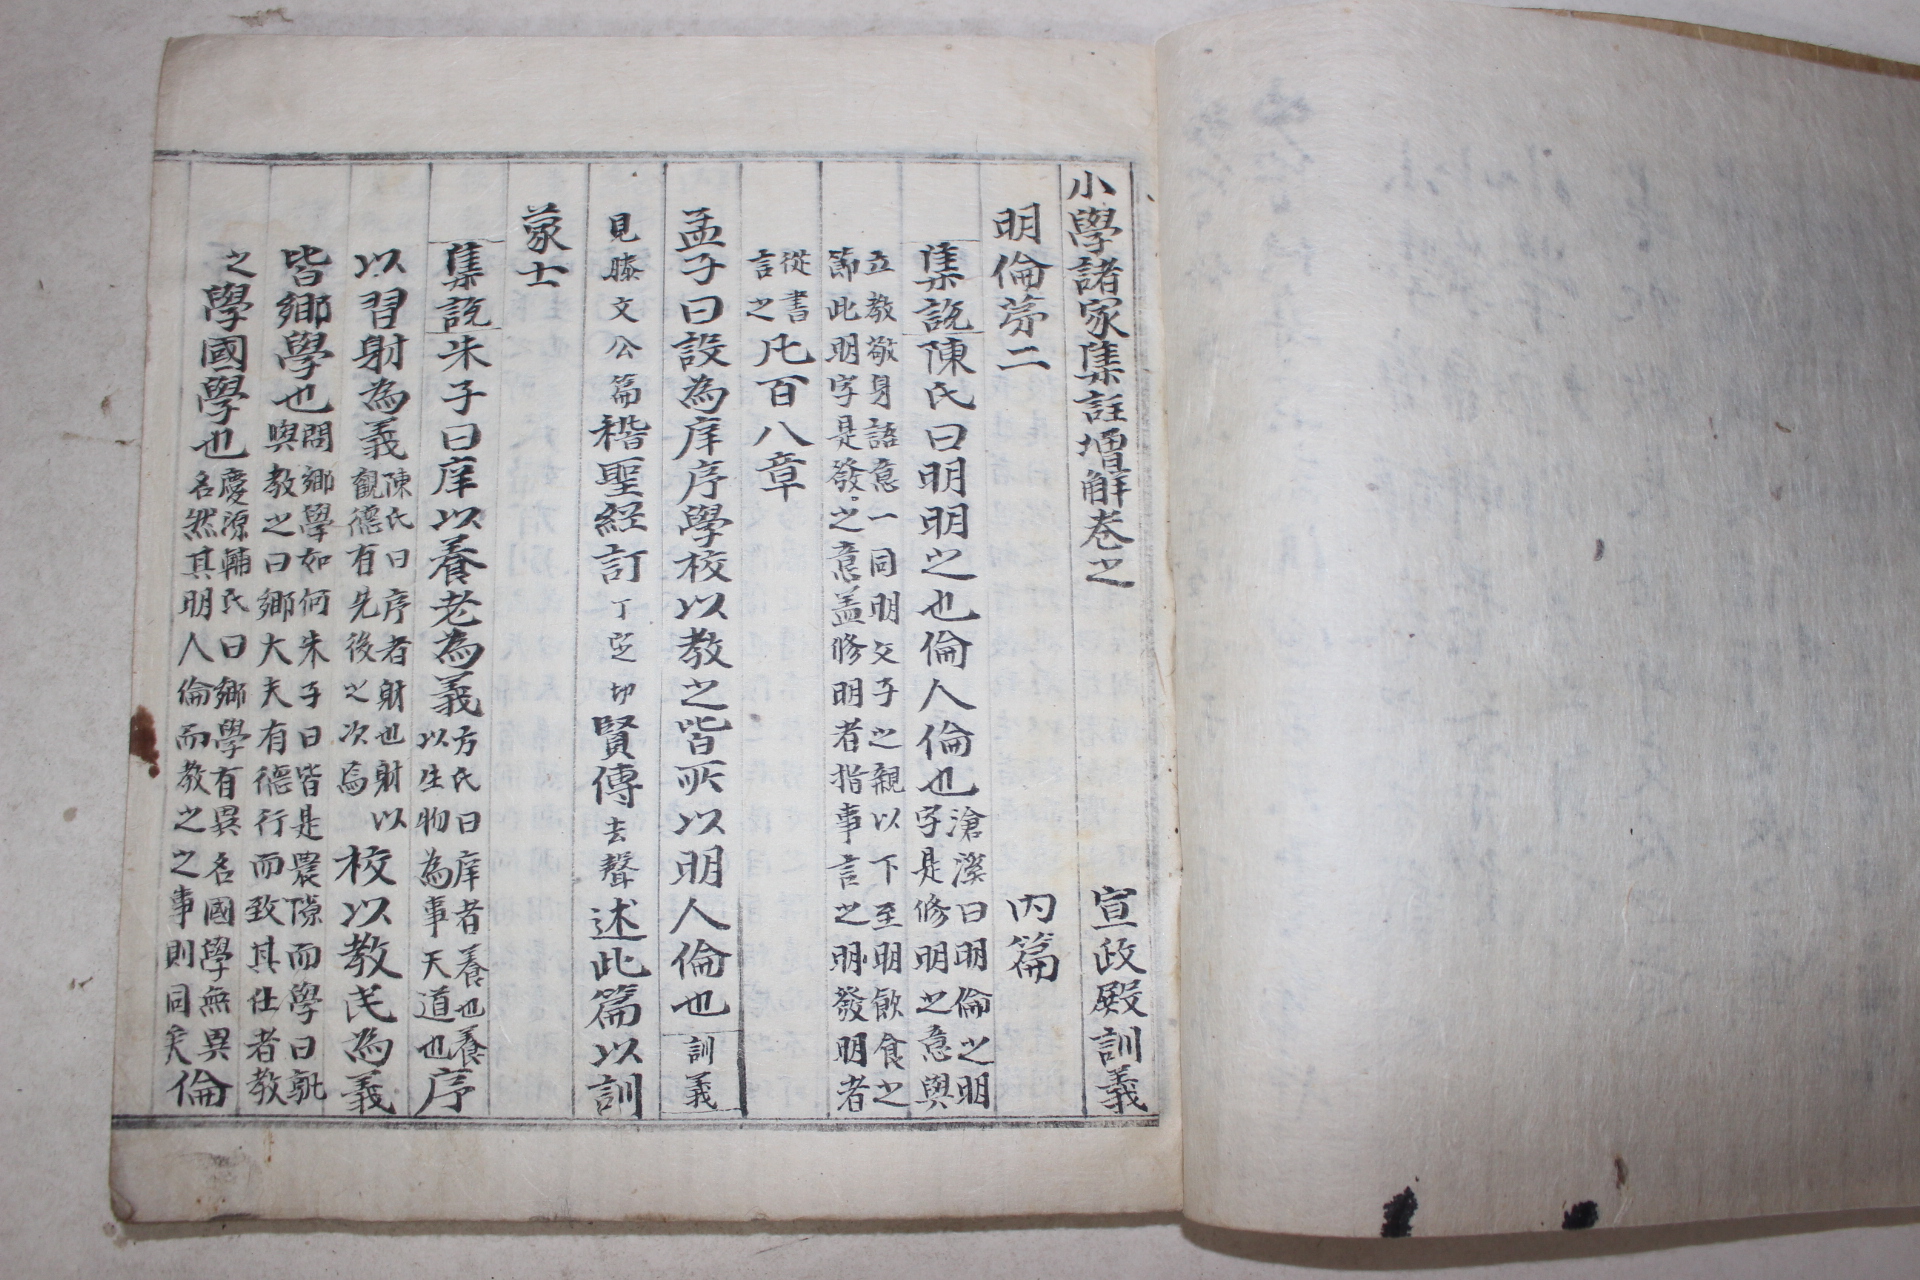 小學諸家集註增解卷之　宣政殿訓義
明倫第二　內篇
集說陳氏曰明明之也倫人倫也滄溪曰明倫之明字是修明之意與
立敎敬身語意一同明父子之親以下至明飮食之節此明字是發之意盖修明者指事言之明發明者
從書言之凡百八章
孟子曰設為庠序學校以敎之皆所以明人倫也訓義
見滕文公篇稽聖経訂丁定切賢傳去聲述此篇以訓
蒙士
集說朱子曰庠以養老為義方氏曰庠者養也養以生物為事天道也序
以習射為義陳氏曰序者射也射以觀德有先後之次焉校以敎民為義
皆鄕學也問鄕學如何朱子曰皆是農隙而學曰孰與敎之曰鄕大夫有德行而致其仕者敎
之學國學也慶源輔氏曰鄕學有異名國學無異名然其明人倫而敎之之事則同矣倫